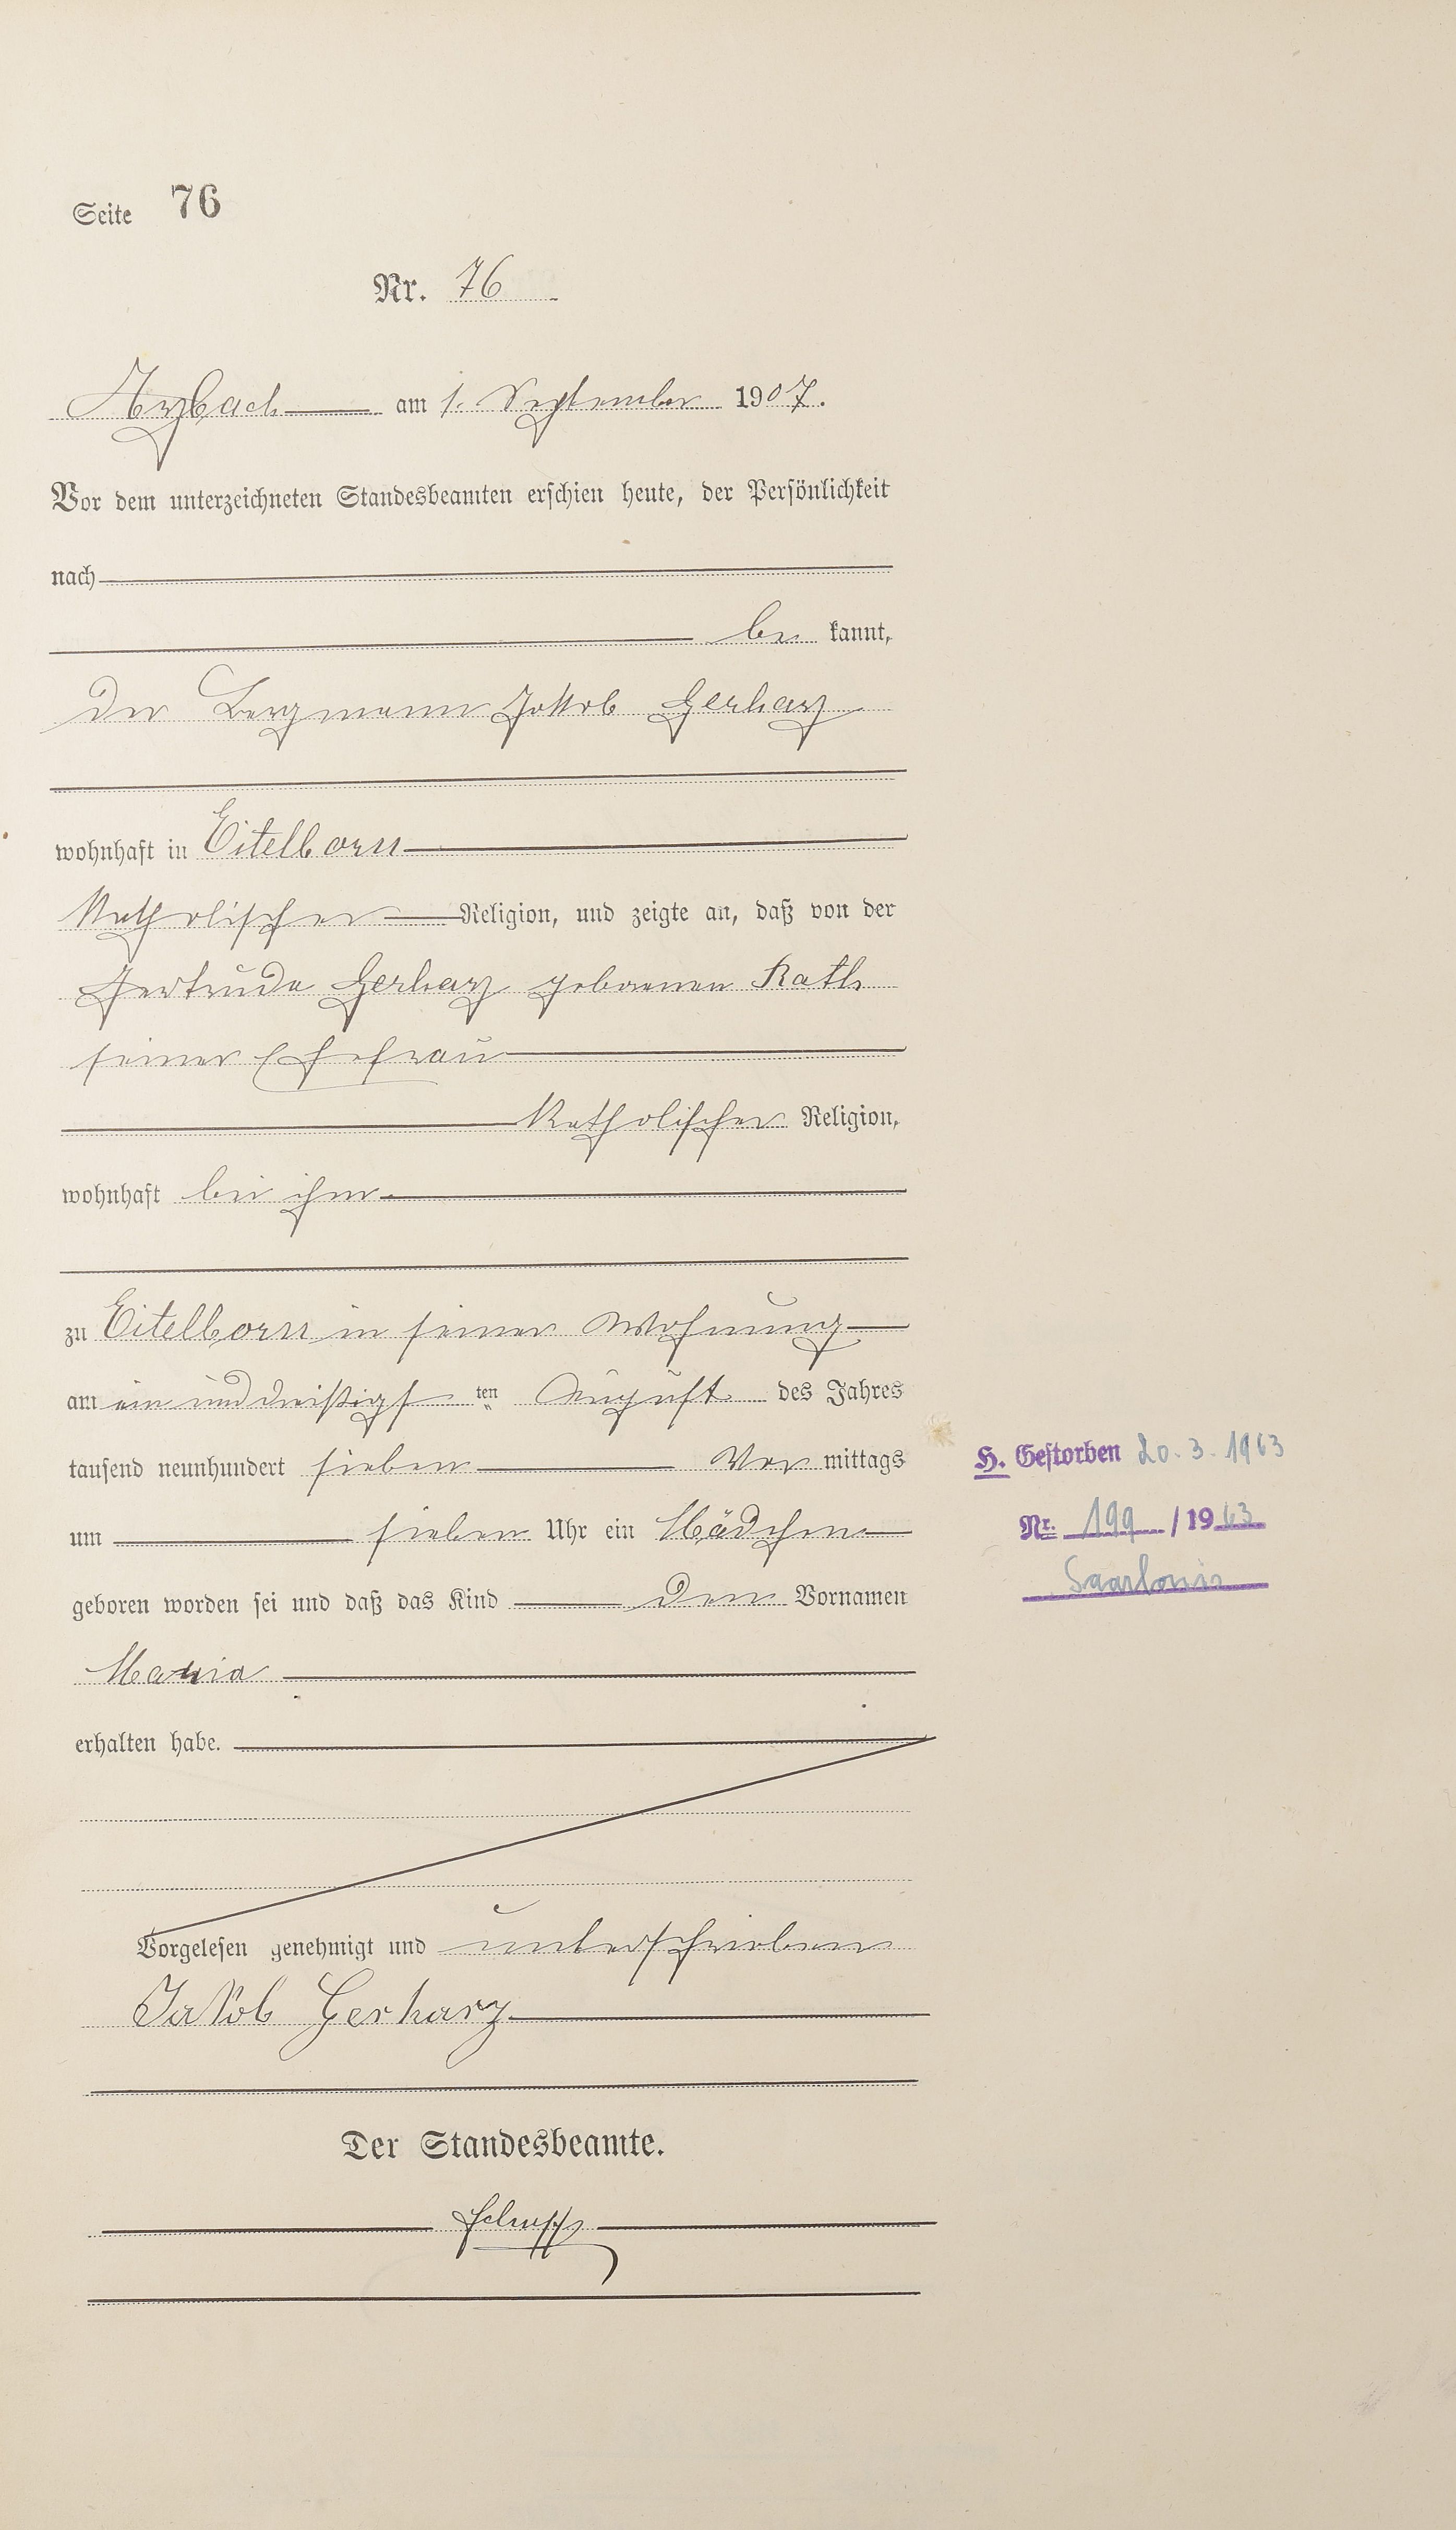 Seite 76
Nr. 76
Arzbach am 1. September 1907.
Vor dem unterzeichneten Standesbeamten erschien heute, der Persönlichkeit
nach
be kannt,
der Bergmann Jakob Gerharz
wohnhaft in Eitelborn
katholischer Religion, und zeigte an, daß von der
Gertrude Gerharz geborenen Rath
seiner Ehefrau
katholischer Religion,
wohnhaft bei ihm
zu Eitelborn in seiner Wohnung
am ein und dreißigsten August des Jahres
tausend neunhundert sieben Vor mittags
um sieben Uhr ein Mädchen
geboren worden sei und daß das Kind den Vornamen
Maria
erhalten habe.
H. Gestorben 20.3.1963
Nr. 199 / 1963
Saarlouis
Vorgelesen genehmigt und unterschrieben
Jakob Gerharz
Der Standesbeamte.